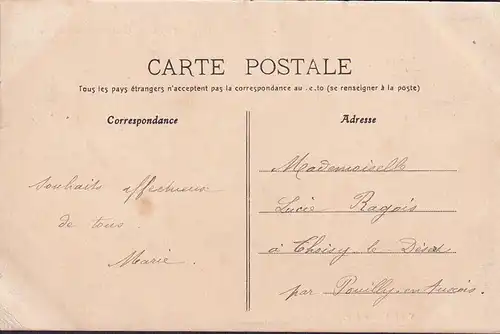 CARTE POSTALE
Tous les pays étrangers n'acceptent pas la correspondance au .e.to (se renseigner à la poste)
Correspondance
Adresse
Souhaits affectueux
de tous.
Marie.
Mademoiselle
Lucie Ragois
à Thoisy le Désert
par Pouilly-en-Auxois.